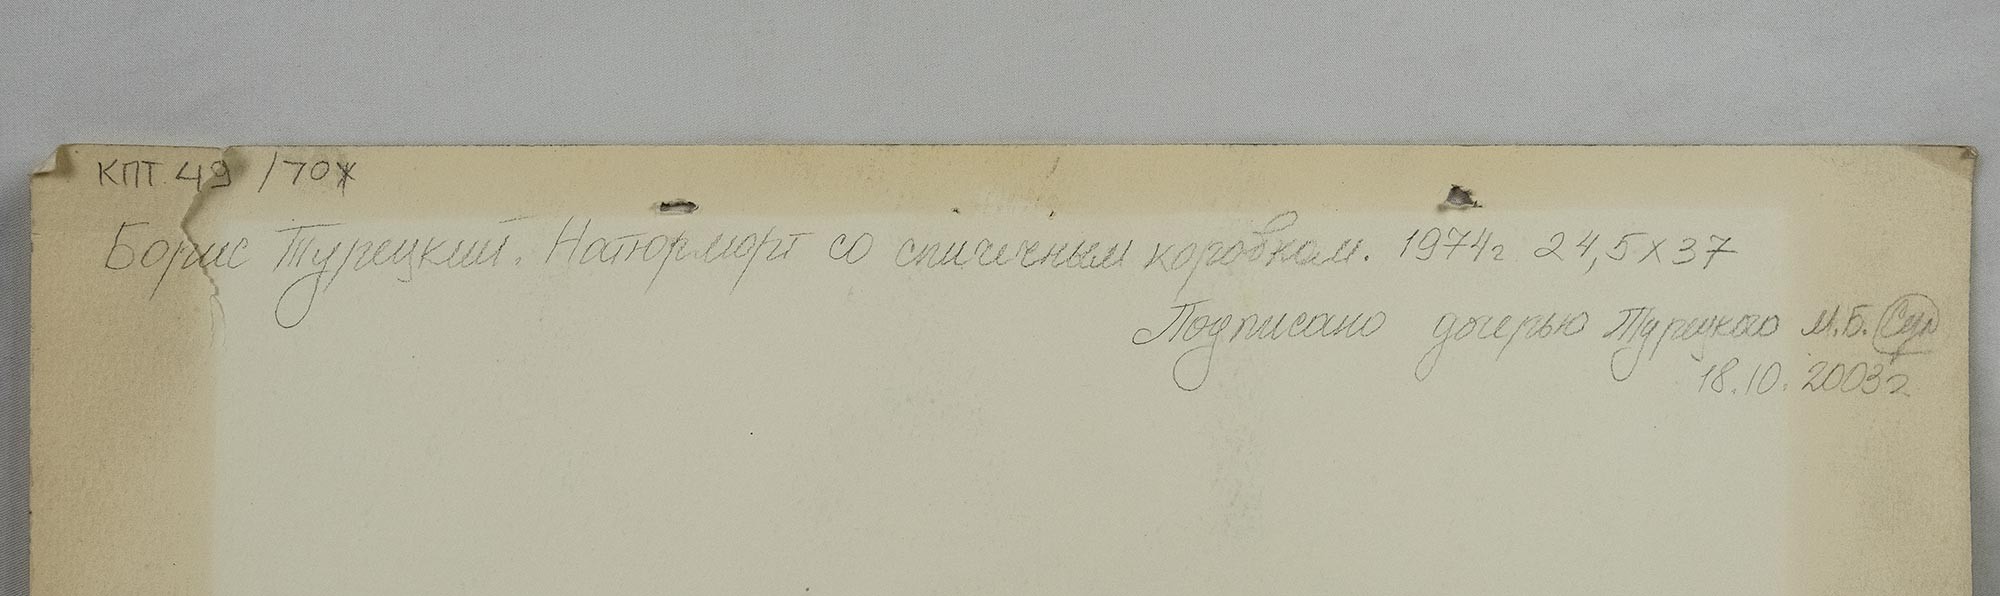 КПТ 49 /70ж
Борис Турецкий. Натюрморт со спичечным коробком. 1974г 24,5х37
Подписано дочерью Турецкого М.Б.
18.10.2003г